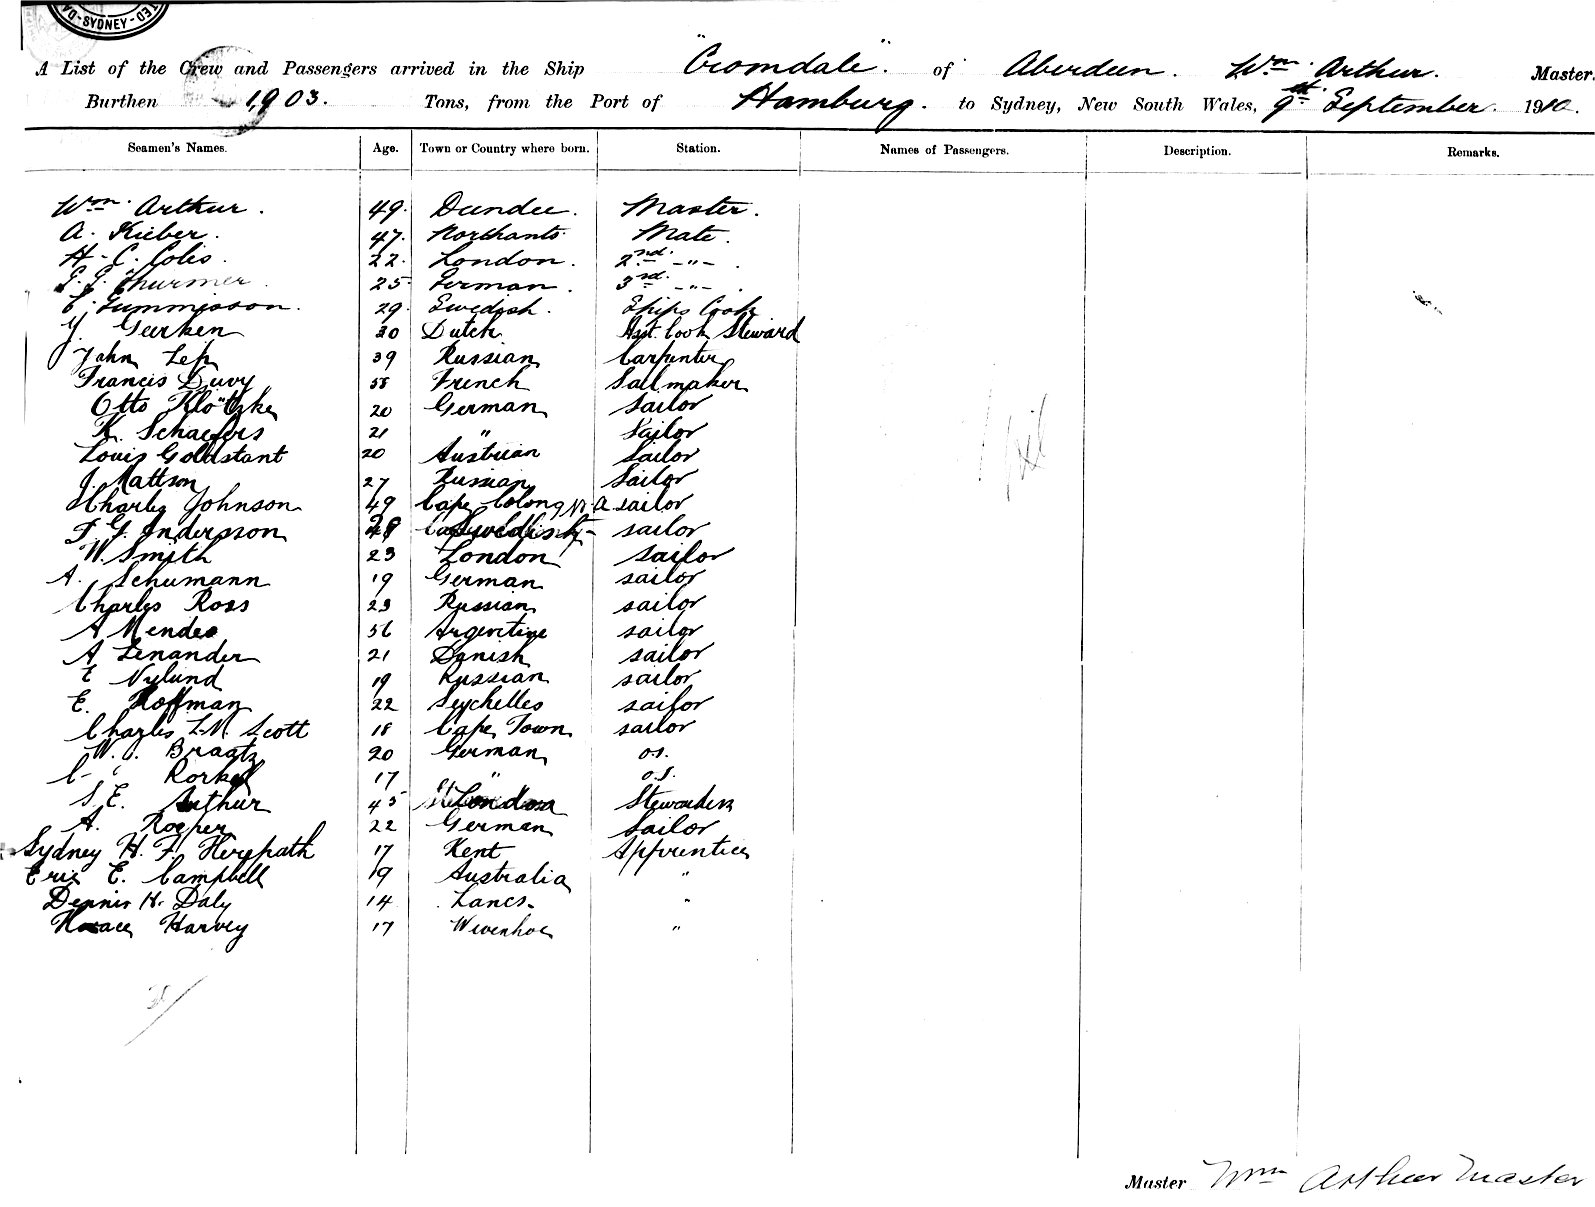 TED - SYDNEY - DA
A List of the Crew and Passengers arrived in the Ship "Cromdale". of Aberdeen. Wm. Arthur. Master.
Burthen 1,903. Tons, from the Port of Hamburg. to Sydney, New South Wales, 9st. September. 1910.
Seamen's Names. Age. Town or Country where born. Station. Names of Passengers. Description. Remarks.
Wm. Arthur. 49. Dundee. Master.
A. Kieber. 47. Northants. Mate.
H. C. Coles. 22. London. 2nd. -"- .
Thurmer 25. German. 3rd. -"-
Gummisson. 29. Swedish. Ships Cook
Geerken 30 Dutch Asst. Cook Steward
John Lep 39 Russian Carpenter
Francis Duvy 58 French Sailmaker
Otto Klötzke 20 German sailor
K. Schaefers 21 " Sailor
Louis Goldstant 20 Austrian Sailor
J. Mattson 27 Russian Sailor
Charles Johnson 49 Cape Colony sailor
F. G. Andersson 28 Swedish sailor
W. Smith 23 London sailor
A. Schumann 19 German sailor
Charles Ross 23 Russian sailor
A Mendes 56 Argentine sailor
A Lenander 21 Danish sailor
E Nylund 19 Russian sailor
E. Hoffman 22 Seychelles sailor
Charles L.M. Scott 18 Cape Town sailor
W. J. Braatz 20 German o.s.
17 " o.s.
S. E. Arthur 45 London Stewardess
A. Roeper 22 German Sailor
Sydney H. F. Herepath 17 Kent Apprentice
Eric E. Campbell 19 Australia "
Dennis H. Daly 14 Lancs. "
Horace Harvey 17 Wivenhoe "
Master Wm Arthur Master